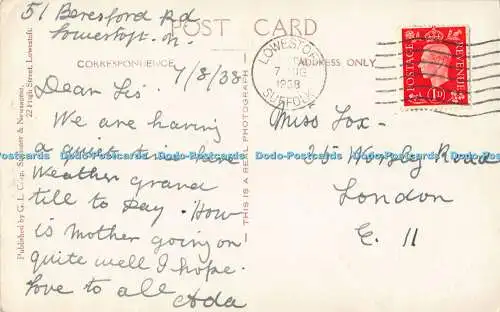 51 Beresford Rd
Lowestoft
POST CARD
CORRESPONDENCE
ADDRESS ONLY
7/8/38
Dear Sis'
We are having
a quiet time here
Weather grand
till to Day. How
is Mother going on
quite well I hope.
Love to all
Ada
Published by G. L. Stationer & Newsagent,
22 High Street, Lowestoft.
THIS IS A REAL PHOTOGRAPH
LOWESTOFT
7 AUG
1938
SUFFOLK
POSTAGE
REVENUE
1D
Miss Fox -
35 Road
London
E. 11
Dodo-Postcards Dodo-Postcards Dodo-Postcards Dodo-Postcards Dodo-Postcards